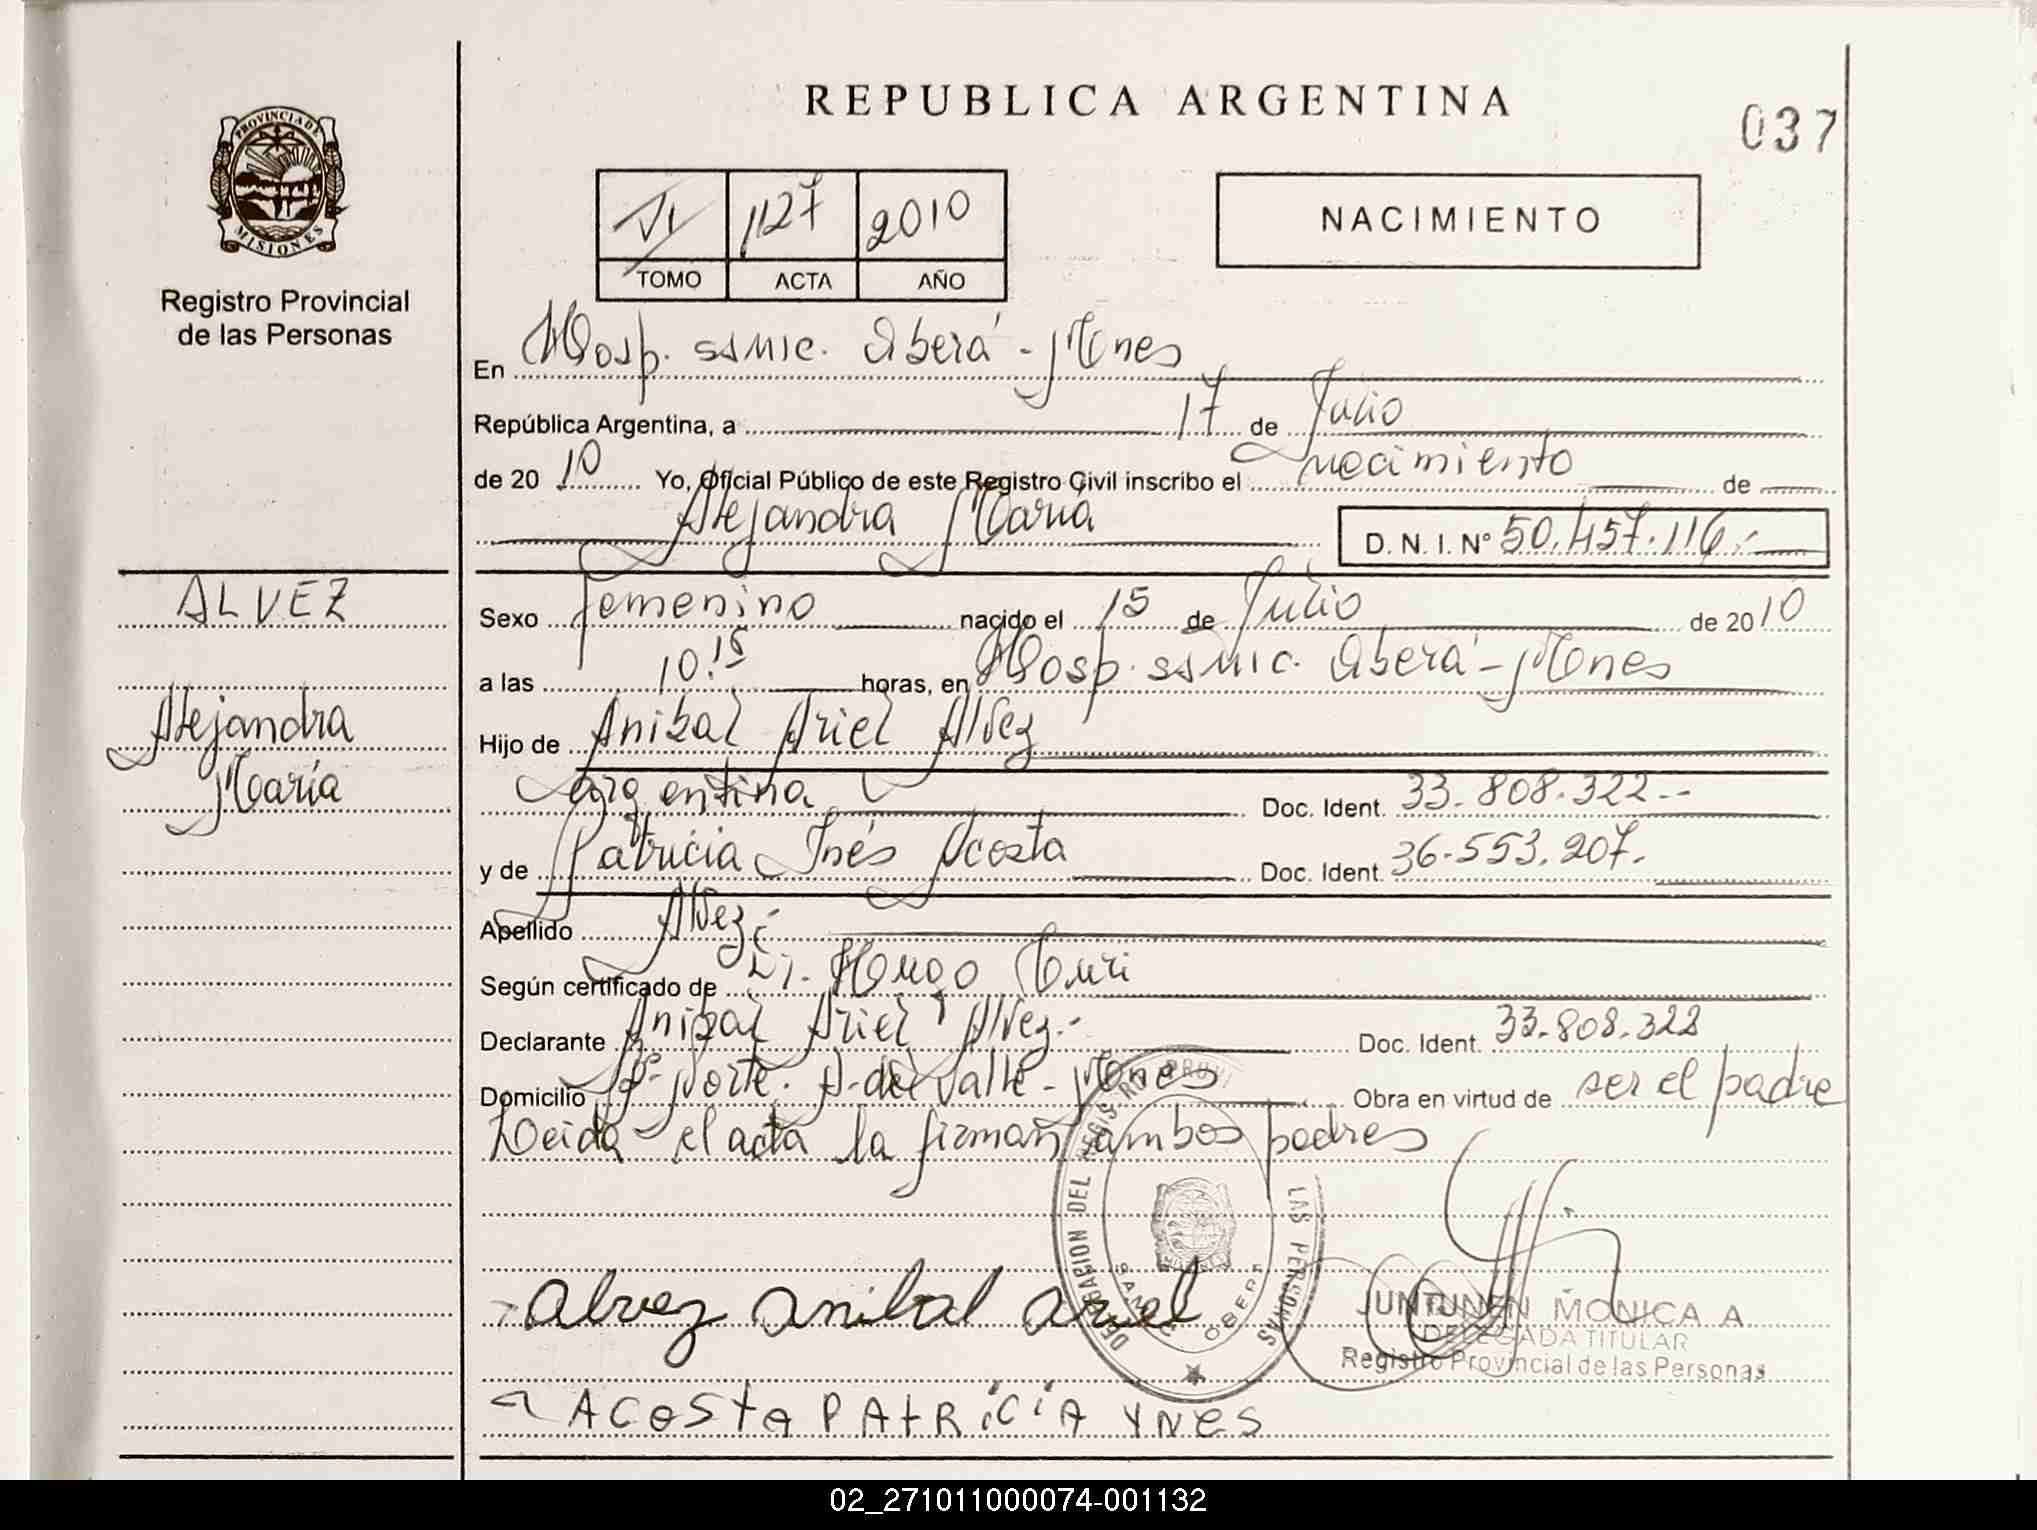 REPUBLICA ARGENTINA
037
PROVINCIA DE
MISIONES
Registro Provincial
de las Personas
VI 1127 2010
TOMO ACTA AÑO
NACIMIENTO
En Hosp. SAMIC. Oberá - Mnes
República Argentina, a 17 de Julio
de 20 10 Yo, Oficial Público de este Registro Civil inscribo el nacimiento de
Alejandra María
D. N. I. Nº 50.457.116.-
ALVEZ
Alejandra
María
Sexo femenino nacido el 15 de Julio de 20 10
a las 10.15 horas, en Hosp. SAMIC. Oberá - Mnes
Hijo de Anibal Ariel Alvez
Argentina Doc. Ident. 33.808.322.-
y de Patricia Inés Acosta Doc. Ident. 36.553.207.
Apellido Alvez
Según certificado de Dr. Hugo
Declarante Anibal Ariel Alvez.- Doc. Ident. 33.808.322
Domicilio Norte. A. del Valle - Mnes Obra en virtud de ser el padre
Leida el acta la firman ambos padres
DELEGACION DEL REGISTRO PROV. LAS PERSONAS
OBERA
Alvez anibal ariel
JUNTUNEN MONICA A
DELEGADA TITULAR
Registro Provincial de las Personas
ACOSTA PATRICIA YNES
02_271011000074-001132